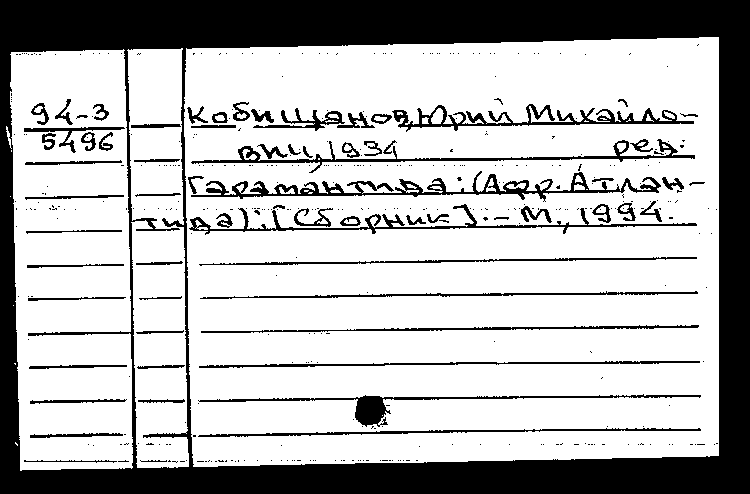 94-3 Кобищанов, Юрий Михайло-
5496 вич, 1934 ред.
Гарамантида: (Афр. Атлан-
тида): [Сборник]. - М., 1994.